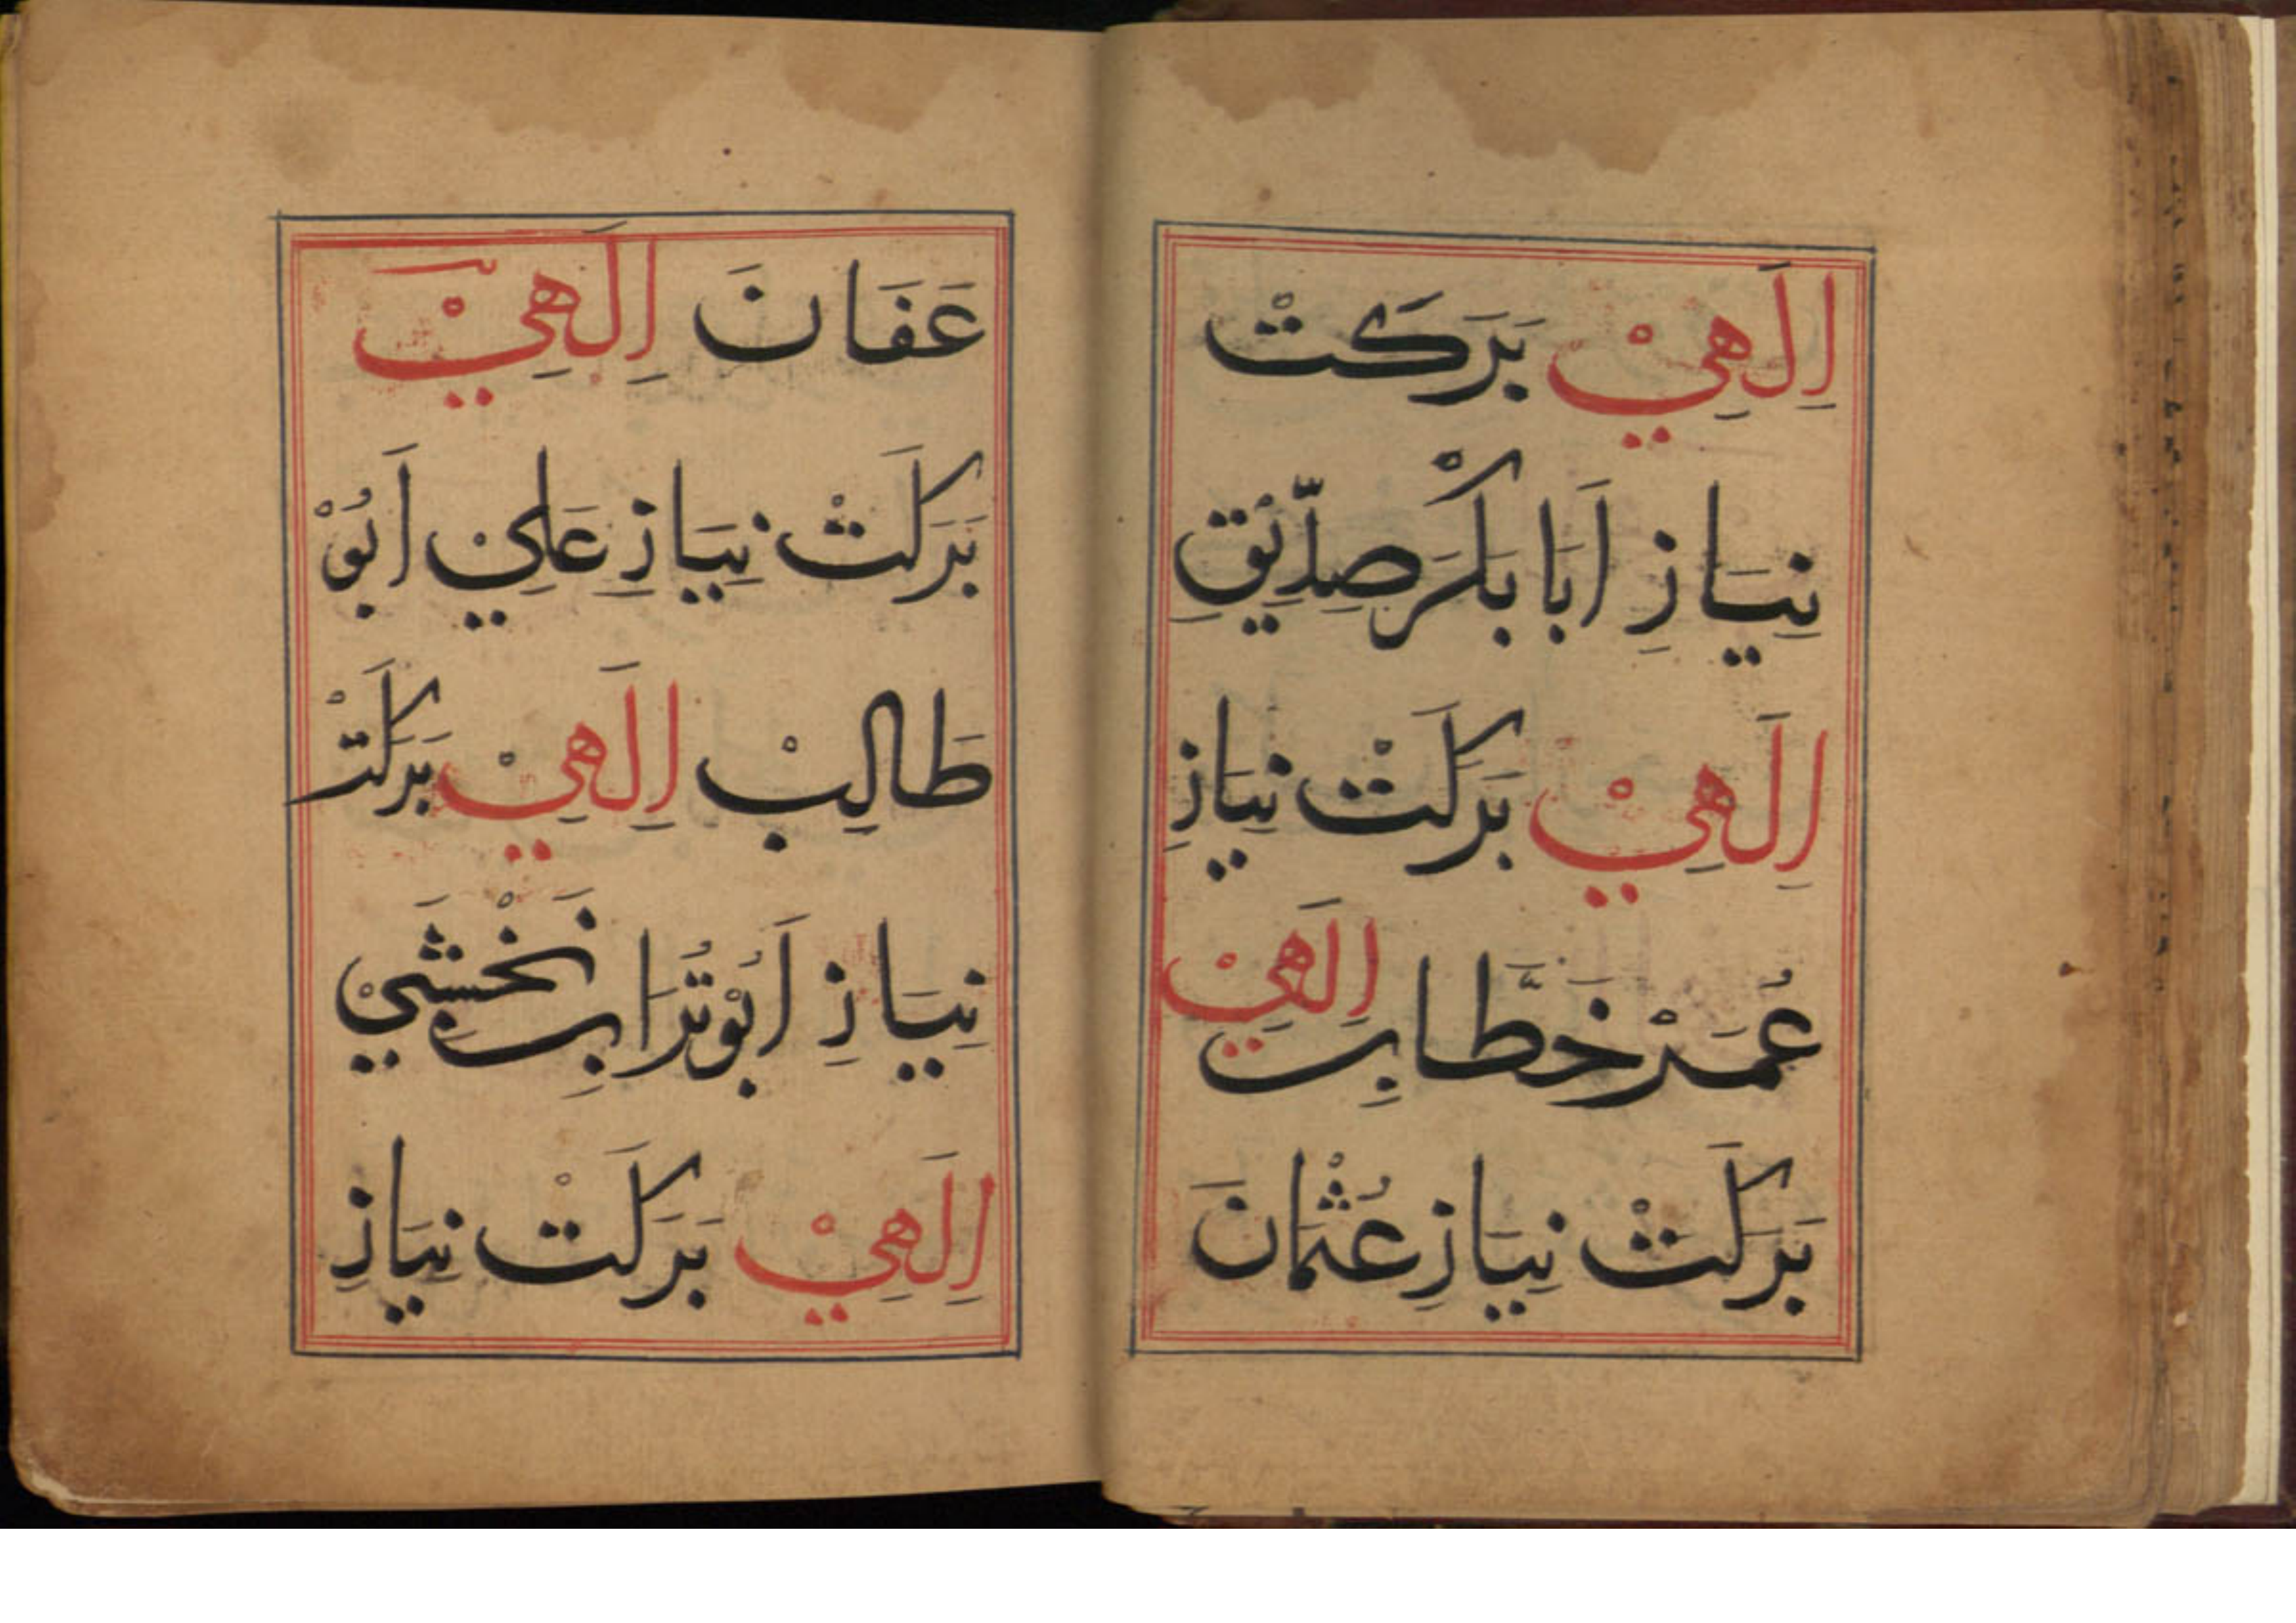 اِلَهِيْ بَرَكَتْ
نِيَازِ اَبَا بَكْرَ صِدِّيْقِ
اِلَهِيْ بَرَكَتْ نِيَازِ
عُمَرْ خَطَّابِ اِلَهِيْ
بَرَكَتْ نِيَازِ عُثْمَانَ
عَفَانَ اِلَهِيْ
بَرَكَتْ نِيَازِ عَلِيْ اَبُوْ
طَالِبْ اِلَهِيْ بَرَكَتْ
نِيَازِ اَبُوْتُرَابِ نَخْشَبِيْ
اِلَهِيْ بَرَكَتْ نِيَازِ